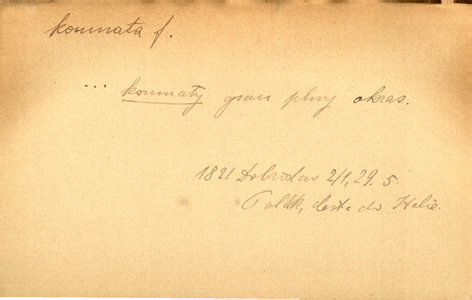 komnata f.
... komnaty gsau plny okras.
1821 Dobroslav 2/1, 29. 5.
Polák, cesta do Italie.